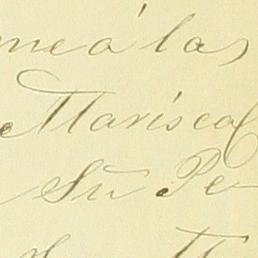 me á las
Mariscal
Su Pe